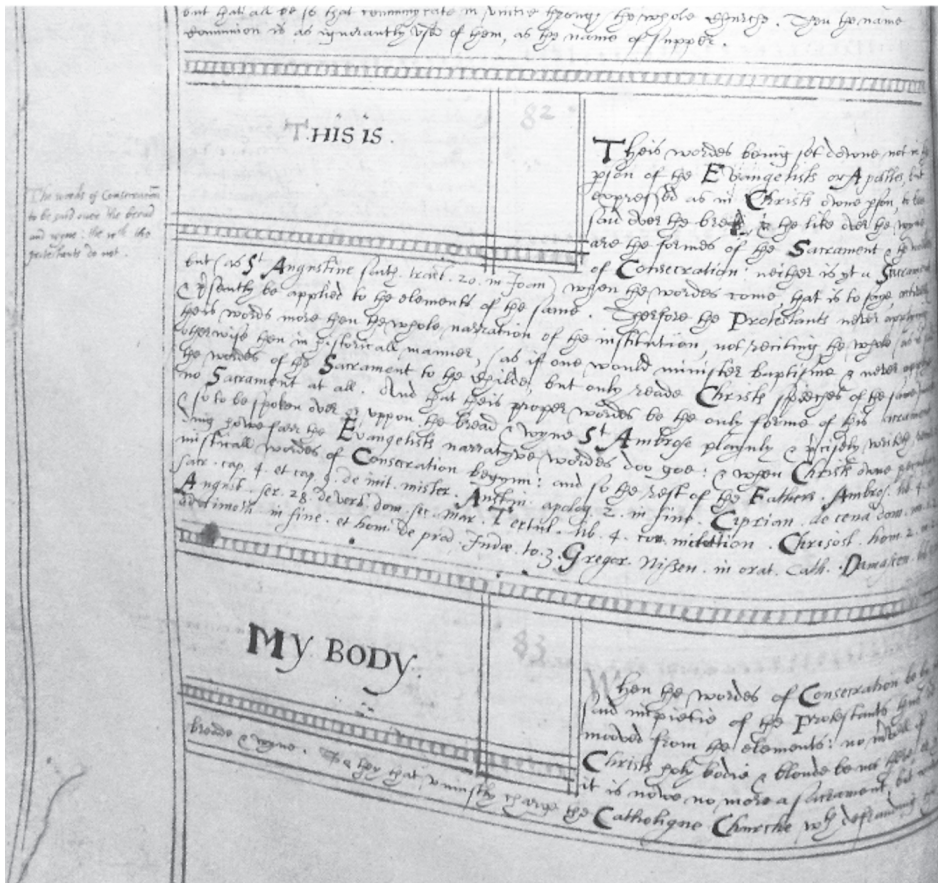 but that all be is that communicate in unitie through the whole Churche. Then the name
dominion is as ignorantly used of them, as the name of Supper.
THIS IS.
82
Theis wordes being set downe not in the
pson of the Evangelists or Apostles, but
expressed as in Christs owne pson, to be
said over the bread, & the like over the wyne
are the formes of the Sacrament & the wordes
of Consecration: neither is yt a Sacrament
The words of Consecration
to be said over the bread
and wyne: the wch the
protestants do not.
but (as St Augustine saith. tract. 20. in Joan) when the wordes come, that is to saye actively
& psently be applied to the elements of the same. Therfore the Protestants never applying
theis words more then the whole narration of the institution, nor reciting the whole (as is
otherwise then in historicall manner, (as if one would minister baptisme & never applye
the wordes of the Sacrament to the childe, but only reade Christs speeches of the same)
no Sacrament at all. And that theis proper wordes be the only forme of this Sacrament
& so to be spoken over or uppon the bread & wyne St Ambrose playnly & pcisely writeth
ing howe farr the Evangelists narratyve wordes doo goe: & when Christs owne
misticall wordes of Consecration begynn: and so the rest of the Fathers. Ambros. lib. 4.
sacr. cap. 4. et cap. 9. de init. mister. Austin. apolog. 2. in fine. Ciprian. de cena dom.
August. ser. 28. de verb. dom. sec. Mar. Tertul. lib. 4. con. Chrisost. hom. 2. in
2. ad timoth. in fine. et hom. de prod. Judæ. to. 3. Gregor. Nissen. in orat. Cath. Damascen.
MY BODY.
83
When the wordes of Consecration be by
said impietie of the Protestants thus
moved from the elements: no
Christs holy bodie & bloude be not there,
it is nowe no more a sacrament, but
breade & wyne. So they that uniustly charge the Catholique Churche wth defraud